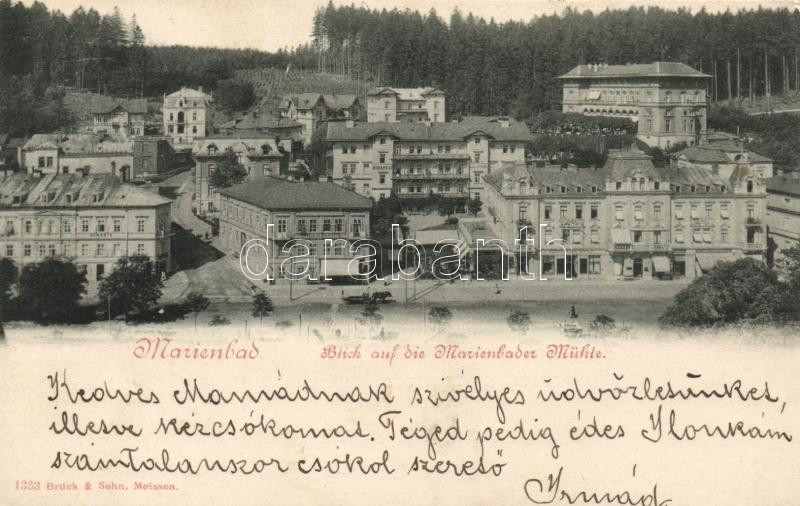 darabanth.com
Marienbad. Blick auf die Marienbader Mühle.
Kedves Mamádnak szivélyes üdvözletünket,
illetve kézcsókomat. Téged pedig édes Ilonkám
számtalanszor csókol szerető
1363 Brück & Sohn, Meissen. Irmád